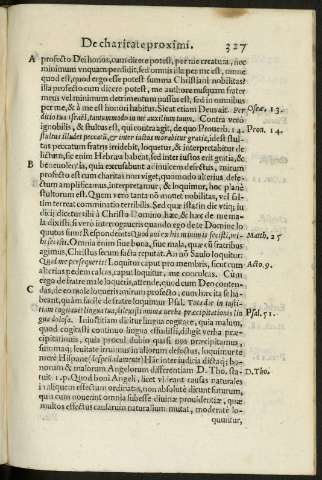 De charitate proximi. 327
A profecto Dei honos, cum dicere potest, per me creatura, nec
minimum vnquam perdidit, sed omnis illa per me est, omne
quod est, quod ergo esse potest summa Christiani nobilitas?
illa profecto cum dicere potest, me authore nusquam frater
meus vel minimum detrimentum passus est, sed in omnibus
per me, & à me est honori habitus. Sic etiam Deus ait. Per Oseæ. 13.
ditio tua Israël, tantummodo in me auxilium tuum. Contra verò
ignobilis, & stultus est, qui contra agit, de quo Prouerb. 14. Prou. 14.
stultus illudet peccatũ, & inter iustos morabitur gratia, idest stul-
tus peccatum fratris irridebit, loquetur, & interpretabitur de
licturus, sic enim Hebræa habent, sed inter iustos erit gratia, &
B beneuolentia, quia excusabunt ac inuicem defectus, mirum
profecto est cum charitas non viget, quomodo alterius defe-
ctum amplificamus, interpretamur, & loquimur, hoc planè
stultorum est. Quem verò tanta nõ mouet nobilitas, vel sal-
tim terreat comminatio terribilis. Sed quæ ista sin die vtiq; iu
dicij dicetur tibi à Christo Domino, hæc, & hæc de me ma-
la dixisti, si verò interrogaueris quando ego de te Domine lo
quutus sum? Respondebit: Quod vni ex his minimis fecisti, mi- Matth. 25
hi fecisti. Omnia enim siue bona, siue mala, quæ cũ fratribus
agimus, Christus secum facta reputat. An nõ Saulo loquitur:
Quid me persequeris? Loquitur caput pro membris, sicut cum Acto. 9.
alterius pedem calcas, caput loquitur, me conculcas. Cũ m
ergo de fratre male loqueris, attende, quod cum Deo conten-
C das, de eo male loqueris, mirum profecto, cum hæc ita se ha-
beant, quàm facile de fratre loquimur Psal. Tota die in iusti-
tiam cogitauit lingua tua, dilexisti omnia verba præcipitationis lin Psal. 51.
gua dolosa. Iniustitiam dicitur lingua cogitare, quia malum,
quod cogitasti continuo lingua effudisti, diligit verba præ-
cipitationis, quia procul dubio quasi non præcipitamur,
summaq; leuitate irruimus in aliorum defectus, loquimur te
merè Hispane (despeñadamente) Hæc inter iudicia distat; bo-
norum & malorum Angelorum differentiam D. Tho. sta- D. Tho.
tuit. 1. p. Quod boni Angeli, licet videant causas naturales
in aliquem effectum ordinatas, non absolute dicunt futurum,
quia cum nouerint omnia subesse diuinæ prouidentiæ, quæ
multos effectus causarum naturalium mutat, moderatè lo-
quuntur,